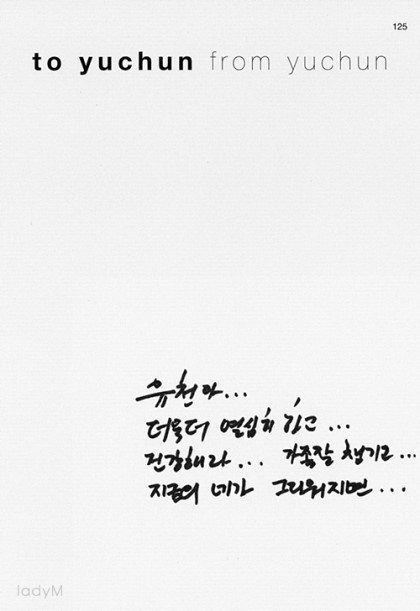 125
to yuchun from yuchun
유천아...
더욱더 열심히 ...
건강해라... 가족잘 챙기고...
지금의 네가 그리워지면...
ladyM